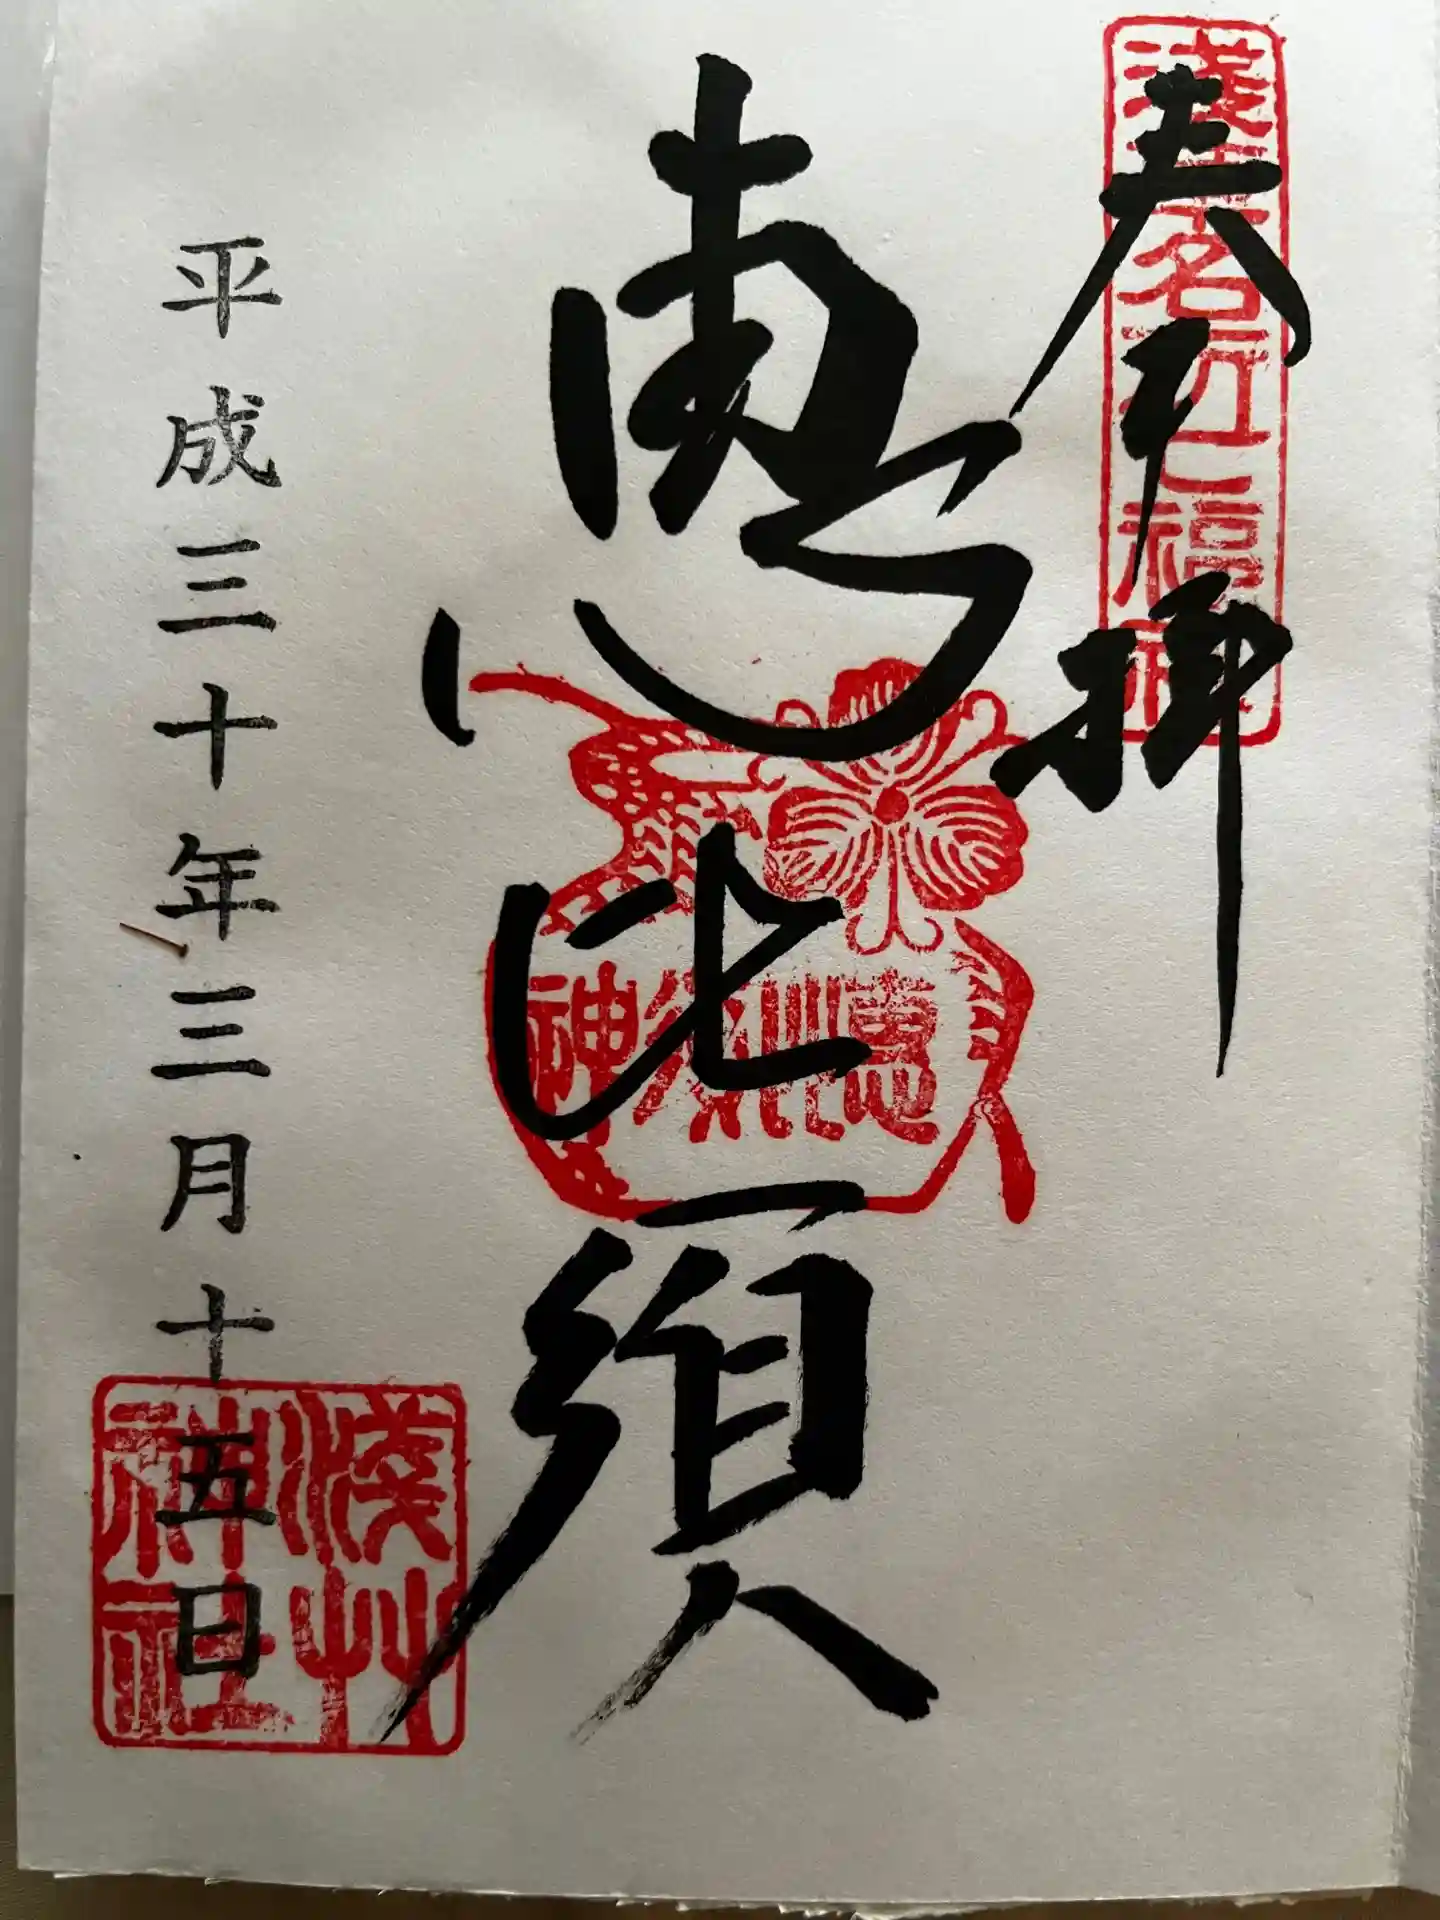 奉拝
淺草名所七福神
恵比須
恵比須神
平成三十年三月十五日
淺草神社